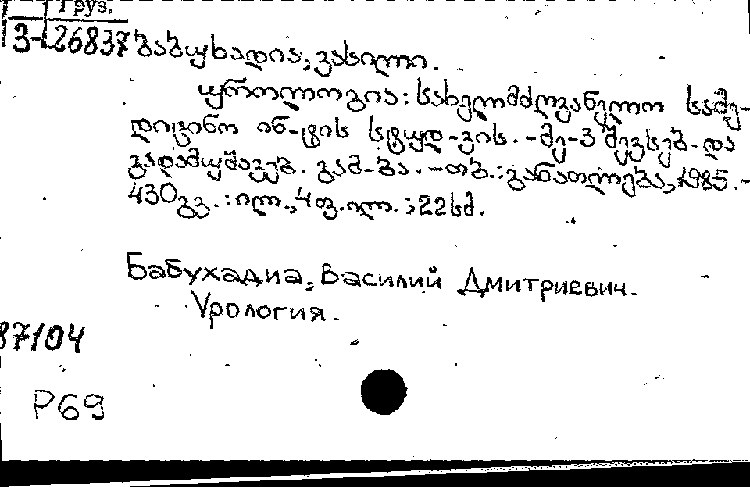 Груз.
3-26837 ბაბუხადია, ვასილი.
უროლოგია: სახელმძღვანელო სამე-
დიცინო ინ-ტის სტუდ-ვის. - მე-3 შევსებ. და
გადამუშავებ. გამ-ბა. - თბ.: განათლება, 1985. -
430 გვ.: ილ., 4 ფ. ილ.; 22 სმ.
Бабухадиа, Василий Дмитриевич.
Урология.
87104
Р69